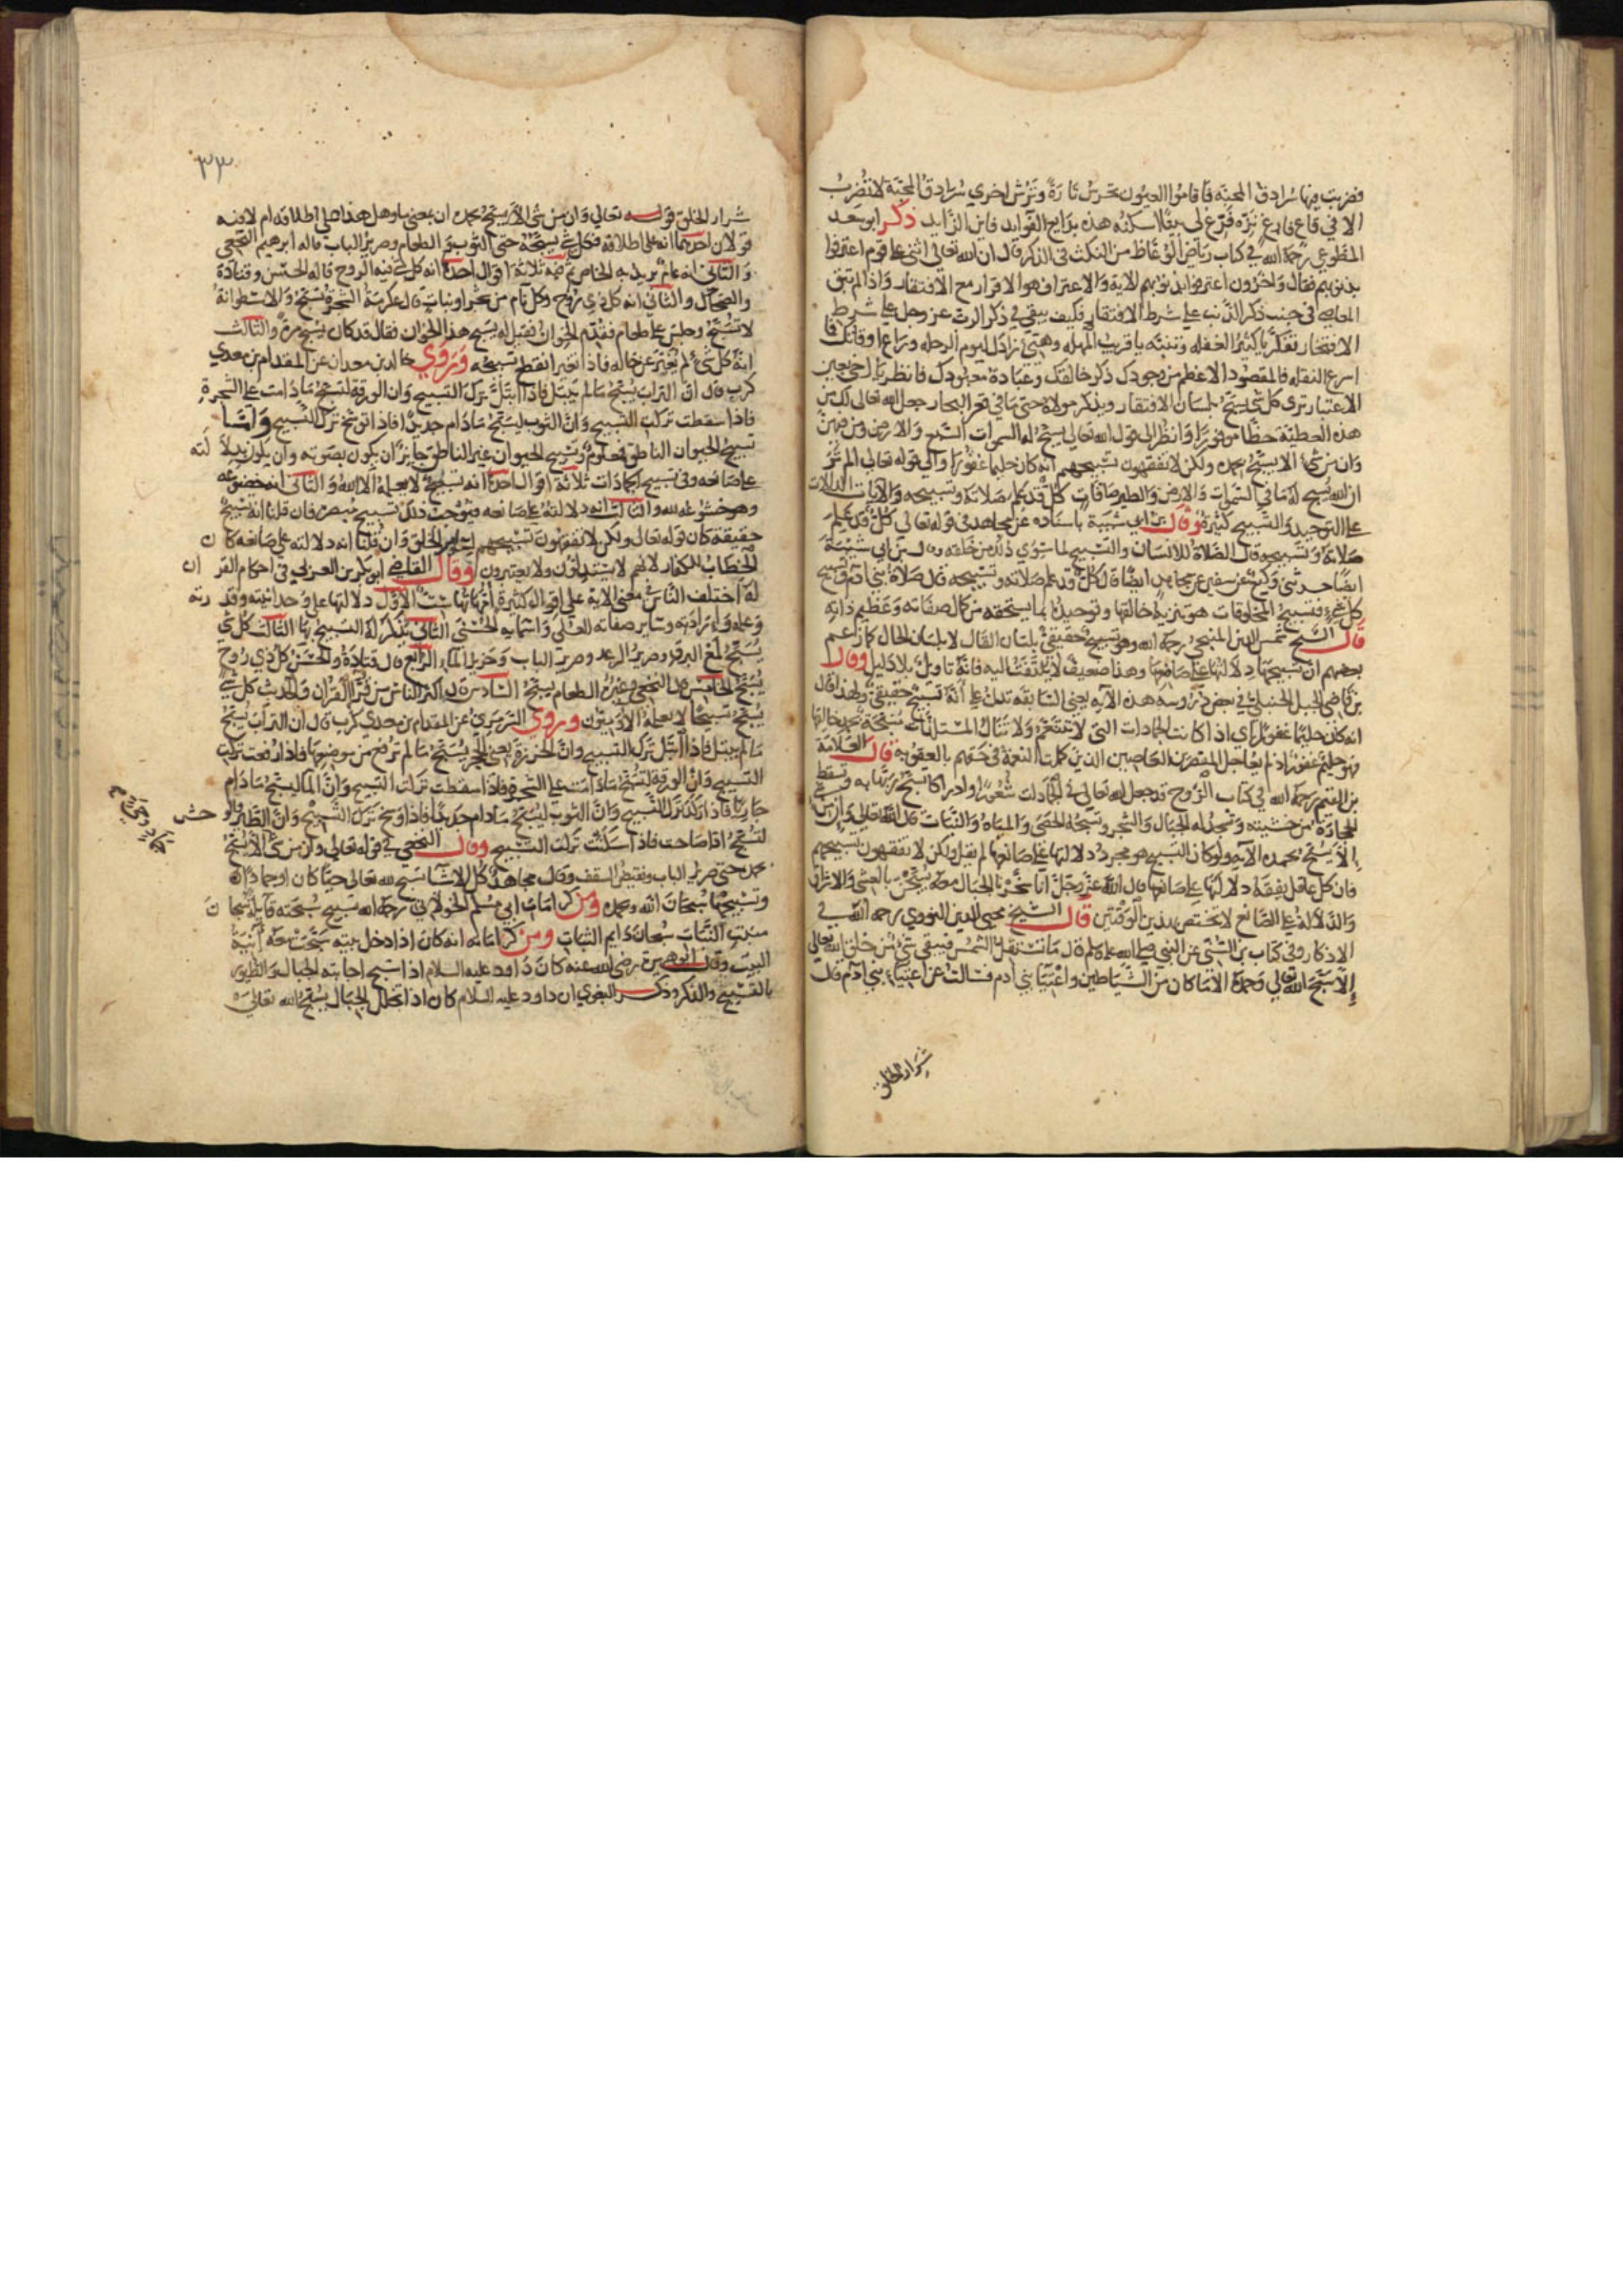 فضربت فيها سرادق المحبة فاقاموا العيون تحرس تارة وترش اخرى سرادق المحبة لا تضرب
الا في قاع فارغ نزه فرغ لي بيتا اسكنه هذه بدايع الفوايد فاين الزايد ذكر ابو سعد
المطوعي رحمه الله في كتاب رياض الوعاظ من النكت في الذكر قال ان الله تعالى اثنى على قوم اعترفوا
بذنوبهم فقال واخرون اعترفوا بذنوبهم الاية والاعتراف هو الاقرار مع الافتقار واذا لم تبق
المعاصي في جنب ذكر الذنب على شرط الافتقار فكيف يبقى في ذكر الرب عز وجل على شرط
الافتخار تفكر يا كثير الغفله وتنبه يا قريب المهله وهيئ زادك ليوم الرحله وراع اوقاتك فا
اسرع النقله فالمقصود الاعظم من وجودك ذكر خالقك وعبادة معبودك فانظر يا اخي بعين
الاعتبار ترى كل شي يسبح بلسان الافتقار ويذكر مولاه حتى ما في قعر البحار جعل الله تعالى لك من
هذه العطية حظا موفورا وانظر الى قول الله تعالى يسبح له السموات السبع والارض ومن فيهن
وان من شئ الا يسبح بحمده ولكن لا تفقهون تسبيحهم انه كان حليما غفورا والى قوله تعالى الم تر
ان الله يسبح له ما في السموات والارض والطير صافات كل قد علم صلاته وتسبيحه والايات الدالات
على التوحيد والتسبيح كثيرة وقال بن ابي شيبة باسناده عن مجاهد في قوله تعالى كل قد علم
صلاته وتسبيحه قال الصلاة للانسان والتسبيح لما سوى ذلك من خلقه وقال بن ابي شيبة
ايضا حدثني وكيع عن سفين عن مجاهد ايضا قال كل قد علم صلاته وتسبيحه قال صلاة بني ادم وتسبيح
كل شيء فتسبيح المخلوقات هو تنزيه خالقها وتوحيده بما يستحقه من كمال صفاته وعظيم ذاته
قال الشيخ شمس الدين المنبجي رحمه الله وهو تسبيح حقيقي بلسان القال لا بلسان الحال كما زعم
بعضهم ان تسبيحها دلالتها على صانعها وهذا ضعيف لا يلتفت اليه فانه تاويل بلا دليل وقال
بن قاضي الجبل الحنبلي في بعض دروسه هذه الآيه يعني السابقة تدل على انه تسبيح حقيقي ولهذا قال
انه كان حليما غفورا اي اذا كانت الجمادات التي لا تتنعم ولا تنال المستلذات مسبحة بحمد خالقها
فهو حليم غفور اذ لم يعاجل المقصرين العاصين الذين كملت النعمة في حقهم بالعقوبة قال العلامة
بن القيم رحمه الله في كتاب الروح قد جعل الله تعالى في الجمادات شعورا وادراكا تسبح ربها به وتسقط
الحجارة من خشيته وتسجد له الجبال والشجر وتسبحه الحصى والمياه والنبات قال الله تعالى وان من شئ
الا يسبح بحمده الآيه ولو كان التسبيح هو مجرد دلالتها على صانعها لم يقل ولكن لا تفقهون تسبيحهم
فان كل عاقل يفقه دلالتها على صانعها قال الله عز وجل انا سخرنا الجبال معه يسبحن بالعشي والاشراق
والدلالة على الصانع لا تختص بهذين الوقتين قال الشيخ محيي الدين النووي رحمه الله في
الاذكار وفي كتاب بن السني عن النبي صلى الله عليه وسلم قال ما تستقل الشمس فيبقى شئ من خلق الله تعالى
إلا سبح الله تعالى وحمده الا ما كان من الشياطين واعتيا بني ادم فسالت عن اعتياء بني ادم فقال
شرار الخلق
٣٣
شرار الخلق قوله تعالى وان من شئ الا يسبح بحمده ان بمعنى ما وهل هذا على اطلاقه ام لا فيه
قولان احدهما انه على اطلاقه فكل شئ يسبحه حتى الثوب والطعام وصرير الباب قاله ابرهيم النخعي
والثاني انه عام يريد به الخاص ثم فيه ثلاثة اقوال احدها انه كل شئ فيه الروح قاله الحسن وقتادة
والضحاك والثاني انه كل ذي روح وكل نام من شجر او نبات قال عكرمة الشجرة تسبح والاسطوانة
لا تسبح وجلس على طعام فقدم الخوان فقيل له يسبح هذا الخوان فقال قد كان يسبح مرة والثالث
انه كل شئ لم يغير عن حاله فاذا تغير انقطع تسبيحه وروي خالد بن معدان عن المقدام بن معدي
كرب قال ان التراب يسبح ما لم يبتل فاذا ابتل ترك التسبيح وان الورقة لتسبح ما دامت على الشجرة
فاذا سقطت تركت التسبيح وان الثوب ليسبح ما دام جديدا فاذا توسخ ترك التسبيح واما
تسبيح الحيوان الناطق فمعلوم وتسبيح الحيوان غير الناطق جايز ان يكون بصوته وان يكون بدلالته
على صانعه وفي تسبيح الجمادات ثلاثة اقوال احدها انه تسبيح لا يعلمه الا الله والثاني انه خضوعه
وخشوعه لله والثالث انه دلالته على صانعه فيوجب ذلك تسبيح مبصره فان قلنا انه تسبيح
حقيقة كان قوله تعالى ولكن لا تفقهون تسبيحهم لساير الخلق وان قلنا انه دلالته على صانعه كان
الخطاب للكفار لانهم لا يستدلون ولا يعتبرون وقال القاضي ابو بكر بن العربي في احكام القران
له اختلف الناس في معنى الاية على اقوال كثيرة امهاتها ست الاول دلالتها على وحدانيته وقدرته
وعلمه وارادته وساير صفاته العلى واسمايه الحسنى الثاني يتذكر له التسبيح بها الثالث كل شي
يسبح لمع البرق وصرير الرعد وصرير الباب وخرير الماء الرابع قال قتادة والحسن كل ذي روح
يسبح الخامس قال النخعي وغيره الطعام يسبح السادس قال اكثر الناس من قرا القران والحديث كل شئ
يسبح تسبيحا لا يعلمه الآدميون وروى الترمذي عن المقدام بن معدي كرب قال ان التراب يسبح
ما لم يبتل فاذا ابتل ترك التسبيح وان الخرزة يعني الحجر يسبح ما لم ترفع من موضعها فاذا رفعت تركت
التسبيح وان الورقة لتسبح ما دامت على الشجرة فاذا سقطت تركت التسبيح وان الماء ليسبح ما دام
جاريا فاذا ركد ترك التسبيح وان الثوب ليسبح ما دام جديدا فاذا وسخ ترك التسبيح وان الطير والوحش
لتسبح اذا صاحت فاذا سكنت تركت التسبيح وقال النخعي في قوله تعالى وان من شئ الا يسبح
بحمده حتى صرير الباب ونقيض السقف وقال مجاهد كل الاشيا تسبح لله تعالى حيا كان او جمادا
وتسبيحها سبحان الله وبحمده ومن كرامات ابي مسلم الخولاني رحمه الله تسبيح سبحته قايلة سبحانك
منبت النبات سبحان دايم الثبات ومن كراماته انه كان اذا دخل بيته سبحت معه آنية
البيت وقال ابو هريرة رضي الله عنه كان داود عليه السلام اذا سبح اجابته الجبال والطيور
بالتسبيح والذكر وذكر البغوي ان داود عليه السلام كان اذا تخلل الجبال يسبح الله تعالى